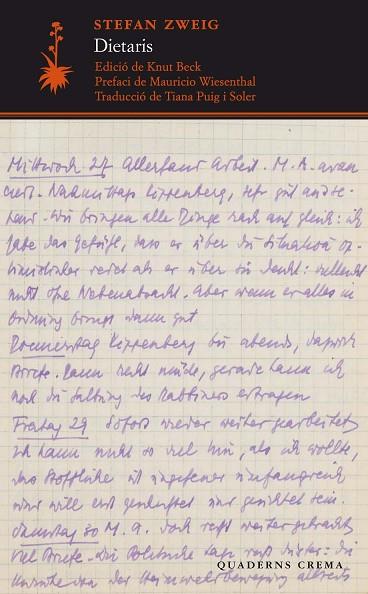 STEFAN ZWEIG
Dietaris
Edició de Knut Beck
Prefaci de Mauricio Wiesenthal
Traducció de Tiana Puig i Soler
Mittwoch 27 Allerhand Arbeit. M. A.
Nachmittags Kippenberg, sehr gut
Wir bringen alle Dinge rasch auf gleich: ich
habe das Gefühl, dass er über die Situation
redet als er über sie denkt: vielleicht
nicht ohne Nebenabsicht. Aber wenn er alles in
Ordnung bringt dann gut
Donnerstag Kippenberg bis abends,
Briefe. Dann recht müde, gerade kann ich
noch die des Rabbiners ertragen
Freitag 29 Sofort wieder weiter gearbeitet,
ich kann nicht so viel hin, als ich wollte,
das Stoffliche ist umfangreich
und will erst und gesichtet sein.
Samstag 30 M. A. doch recht weiter gebracht
viel Briefe. Die Politische Lage düster: die
der Heimwehrbewegung
QUADERNS CREMA